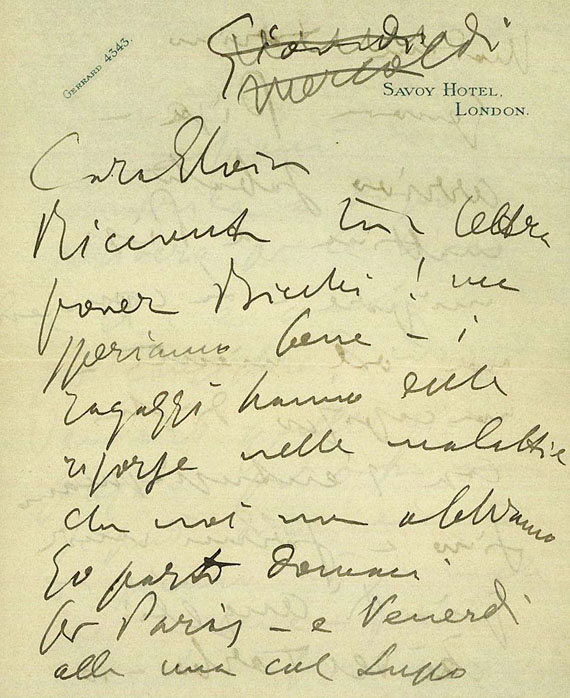 GERRARD 4343.
Giovedi
Mercoldi
SAVOY HOTEL,
LONDON.
Cara Elvira
Ricevuta tua lettera
povera Bicchi! ma
speriamo bene - i
ragazzi hanno delle
risorse nelle malattie
che noi non abbiamo
Io parto domani
per Parigi - e Venerdì
alle una col Lusso